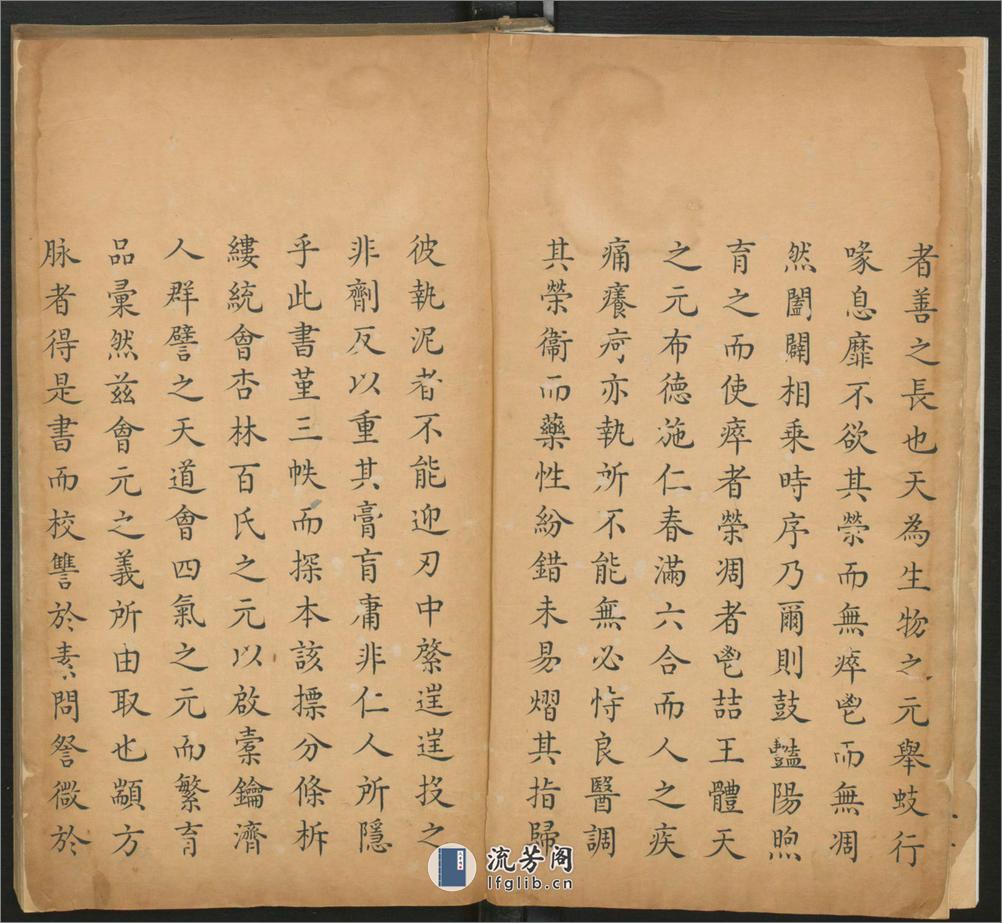 者善之長也天為生物之元舉蚑行
喙息靡不欲其榮而無瘁鬯而無凋
然闔闢相乘時序乃爾則鼓豔陽煦
育之而使瘁者榮凋者鬯喆王體天
之元布德施仁春滿六合而人之疾
痛癢疴亦執所不能無必恃良醫調
其榮衛而藥性紛錯未易熠其指歸
彼執泥者不能迎刃中綮迋迋投之
非劑反以重其膏肓庸非仁人所隱
乎此書堇三帙而探本該摽分條析
縷統會杏林百氏之元以啟橐鑰濟
人群譬之天道會四氣之元而繁育
品彙然茲會元之義所由取也顓方
脉者得是書而校讐於素問詧微於
流芳阁
lfglib.cn